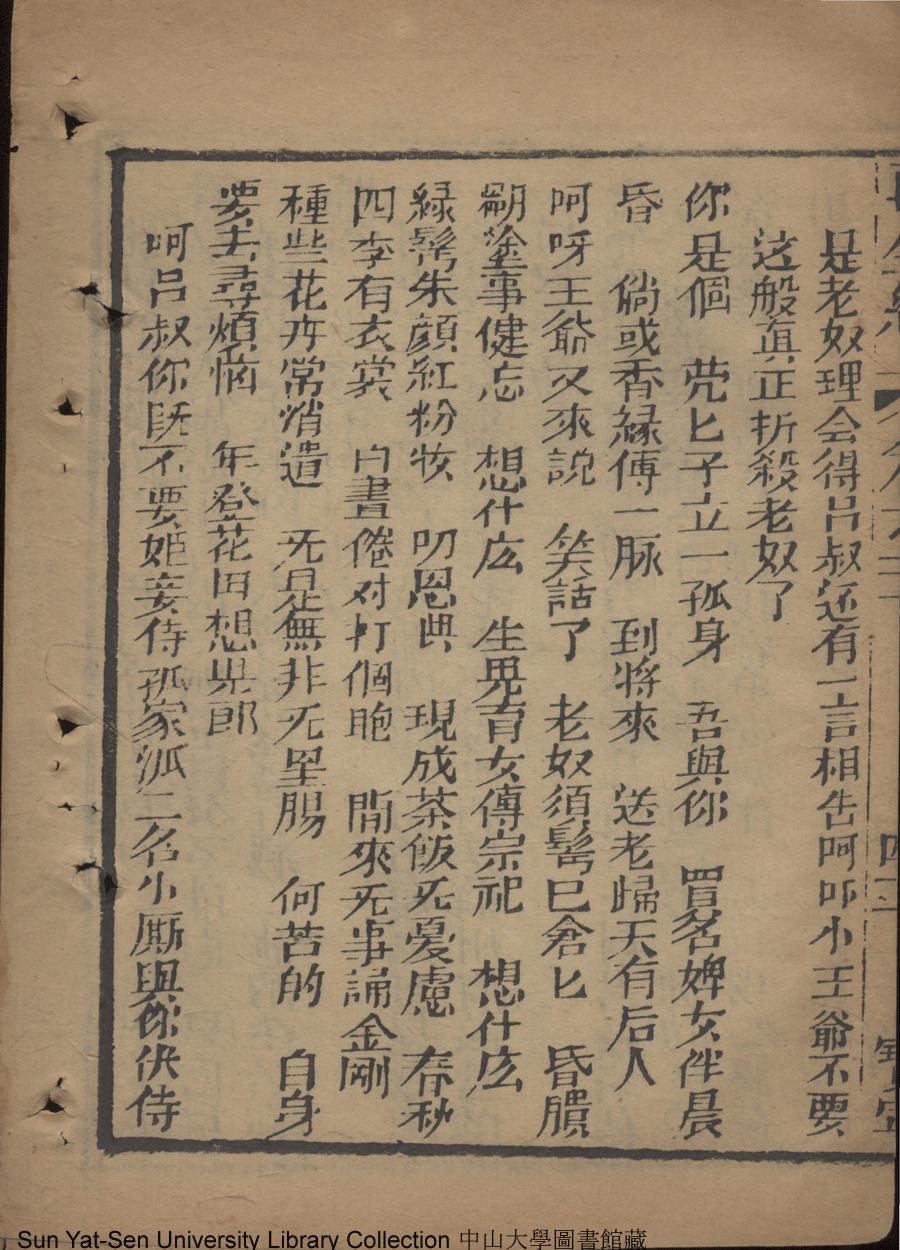 是老奴理会得吕叔还有一言相告呵吓小王爺不要
这般真正折殺老奴了
你是個　煢匕孑立一孤身　吾與你　買名婢女伴晨
昏　倘或香縁傳一脉　到將來　送老歸天有后人
呵呀王爺又來説　笑話了　老奴須髩已倉匕　昏膭
糊塗事健忘　想什庅　生男育女傳宗祀　想什庅
緑髩朱顔紅粉妝　叨恩典　現成茶飯旡憂慮　春秋
四季有衣裳　白晝倦时打個盹　閒來旡事誦金剛
種些花卉常消遣　旡是無非旡罣腸　何苦的　自身
要去尋煩惱　年登花甲想男郎
呵吕叔你既不要姬妾侍孤家派二名小厮與你伏侍
Sun Yat-Sen University Library Collection 中山大學圖書館藏